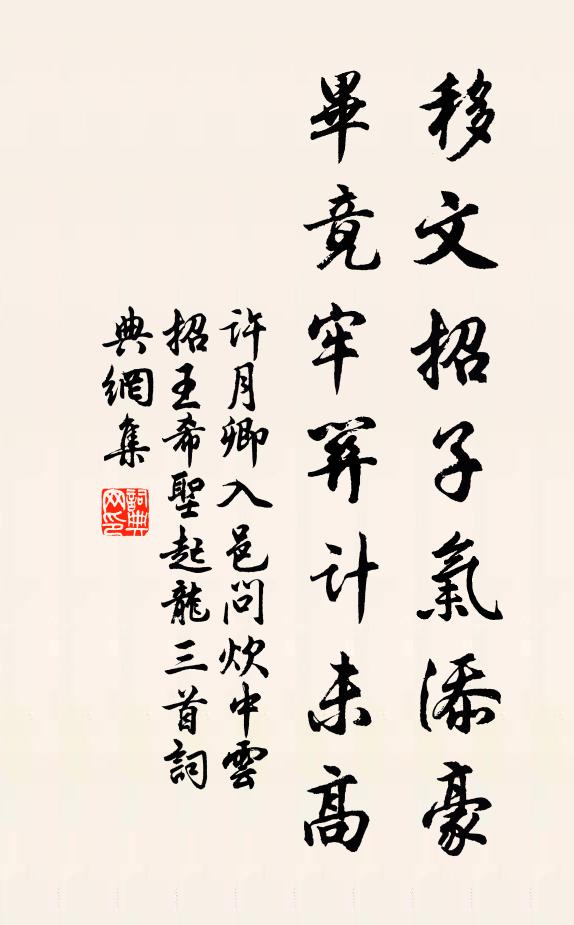 移文招子氣添豪
畢竟牢筭計未高
許月卿入邑問炊中雲
招王希聖起龍三首詞
典網集
詞典網印